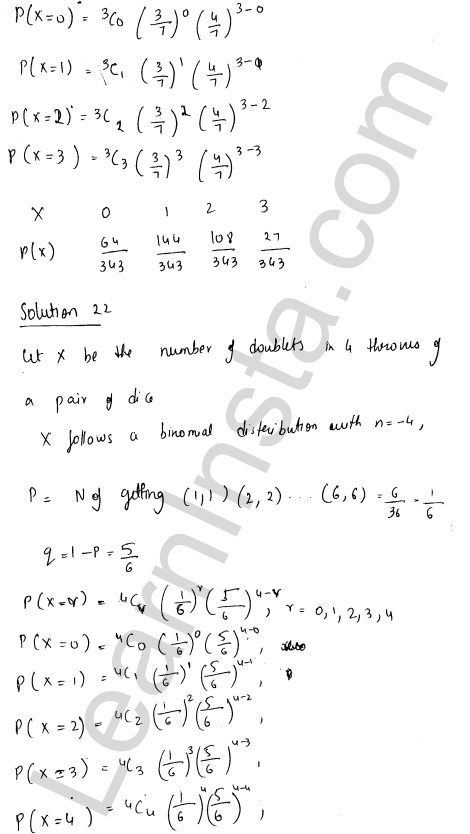 P(X=0) = ³C₀ (3/7)⁰ (4/7)³⁻⁰
P(X=1) = ³C₁ (3/7)¹ (4/7)³⁻
P(X=2) = ³C₂ (3/7)² (4/7)³⁻²
P(X=3) = ³C₃ (3/7)³ (4/7)³⁻³
X 0 1 2 3
P(X) 64/343 144/343 108/343 27/343
Solution 22
Let X be the number of doublets in 4 throws of
a pair of dice
X follows a binomal distribution with n=-4,
P = N of getting (1,1) (2,2) ... (6,6) = 6/36 = 1/6
q = 1-P = 5/6
P(X=r) = ⁴Cᵣ (1/6)ʳ (5/6)⁴⁻ʳ, r = 0,1,2,3,4
P(X=0) = ⁴C₀ (1/6)⁰ (5/6)⁴⁻⁰,
P(X=1) = ⁴C₁ (1/6)¹ (5/6)⁴⁻¹,
P(X=2) = ⁴C₂ (1/6)² (5/6)⁴⁻²,
P(X=3) = ⁴C₃ (1/6)³ (5/6)⁴⁻³,
P(X=4) = ⁴C₄ (1/6)⁴ (5/6)⁴⁻⁴,
LearnInsta.com